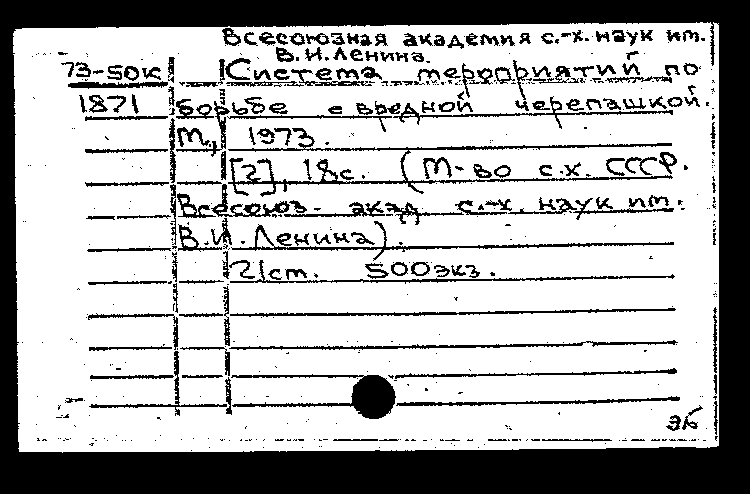 Всесоюзная академия с.-х. наук им.
В.И. Ленина.
73-50к Система мероприятий по
1871 борьбе с вредной черепашкой.
М., 1973.
[2], 18с. (М-во с.х. СССР.
Всесоюз. акад. с.-х. наук им.
В.И. Ленина).
21см. 500экз.
ЭБ